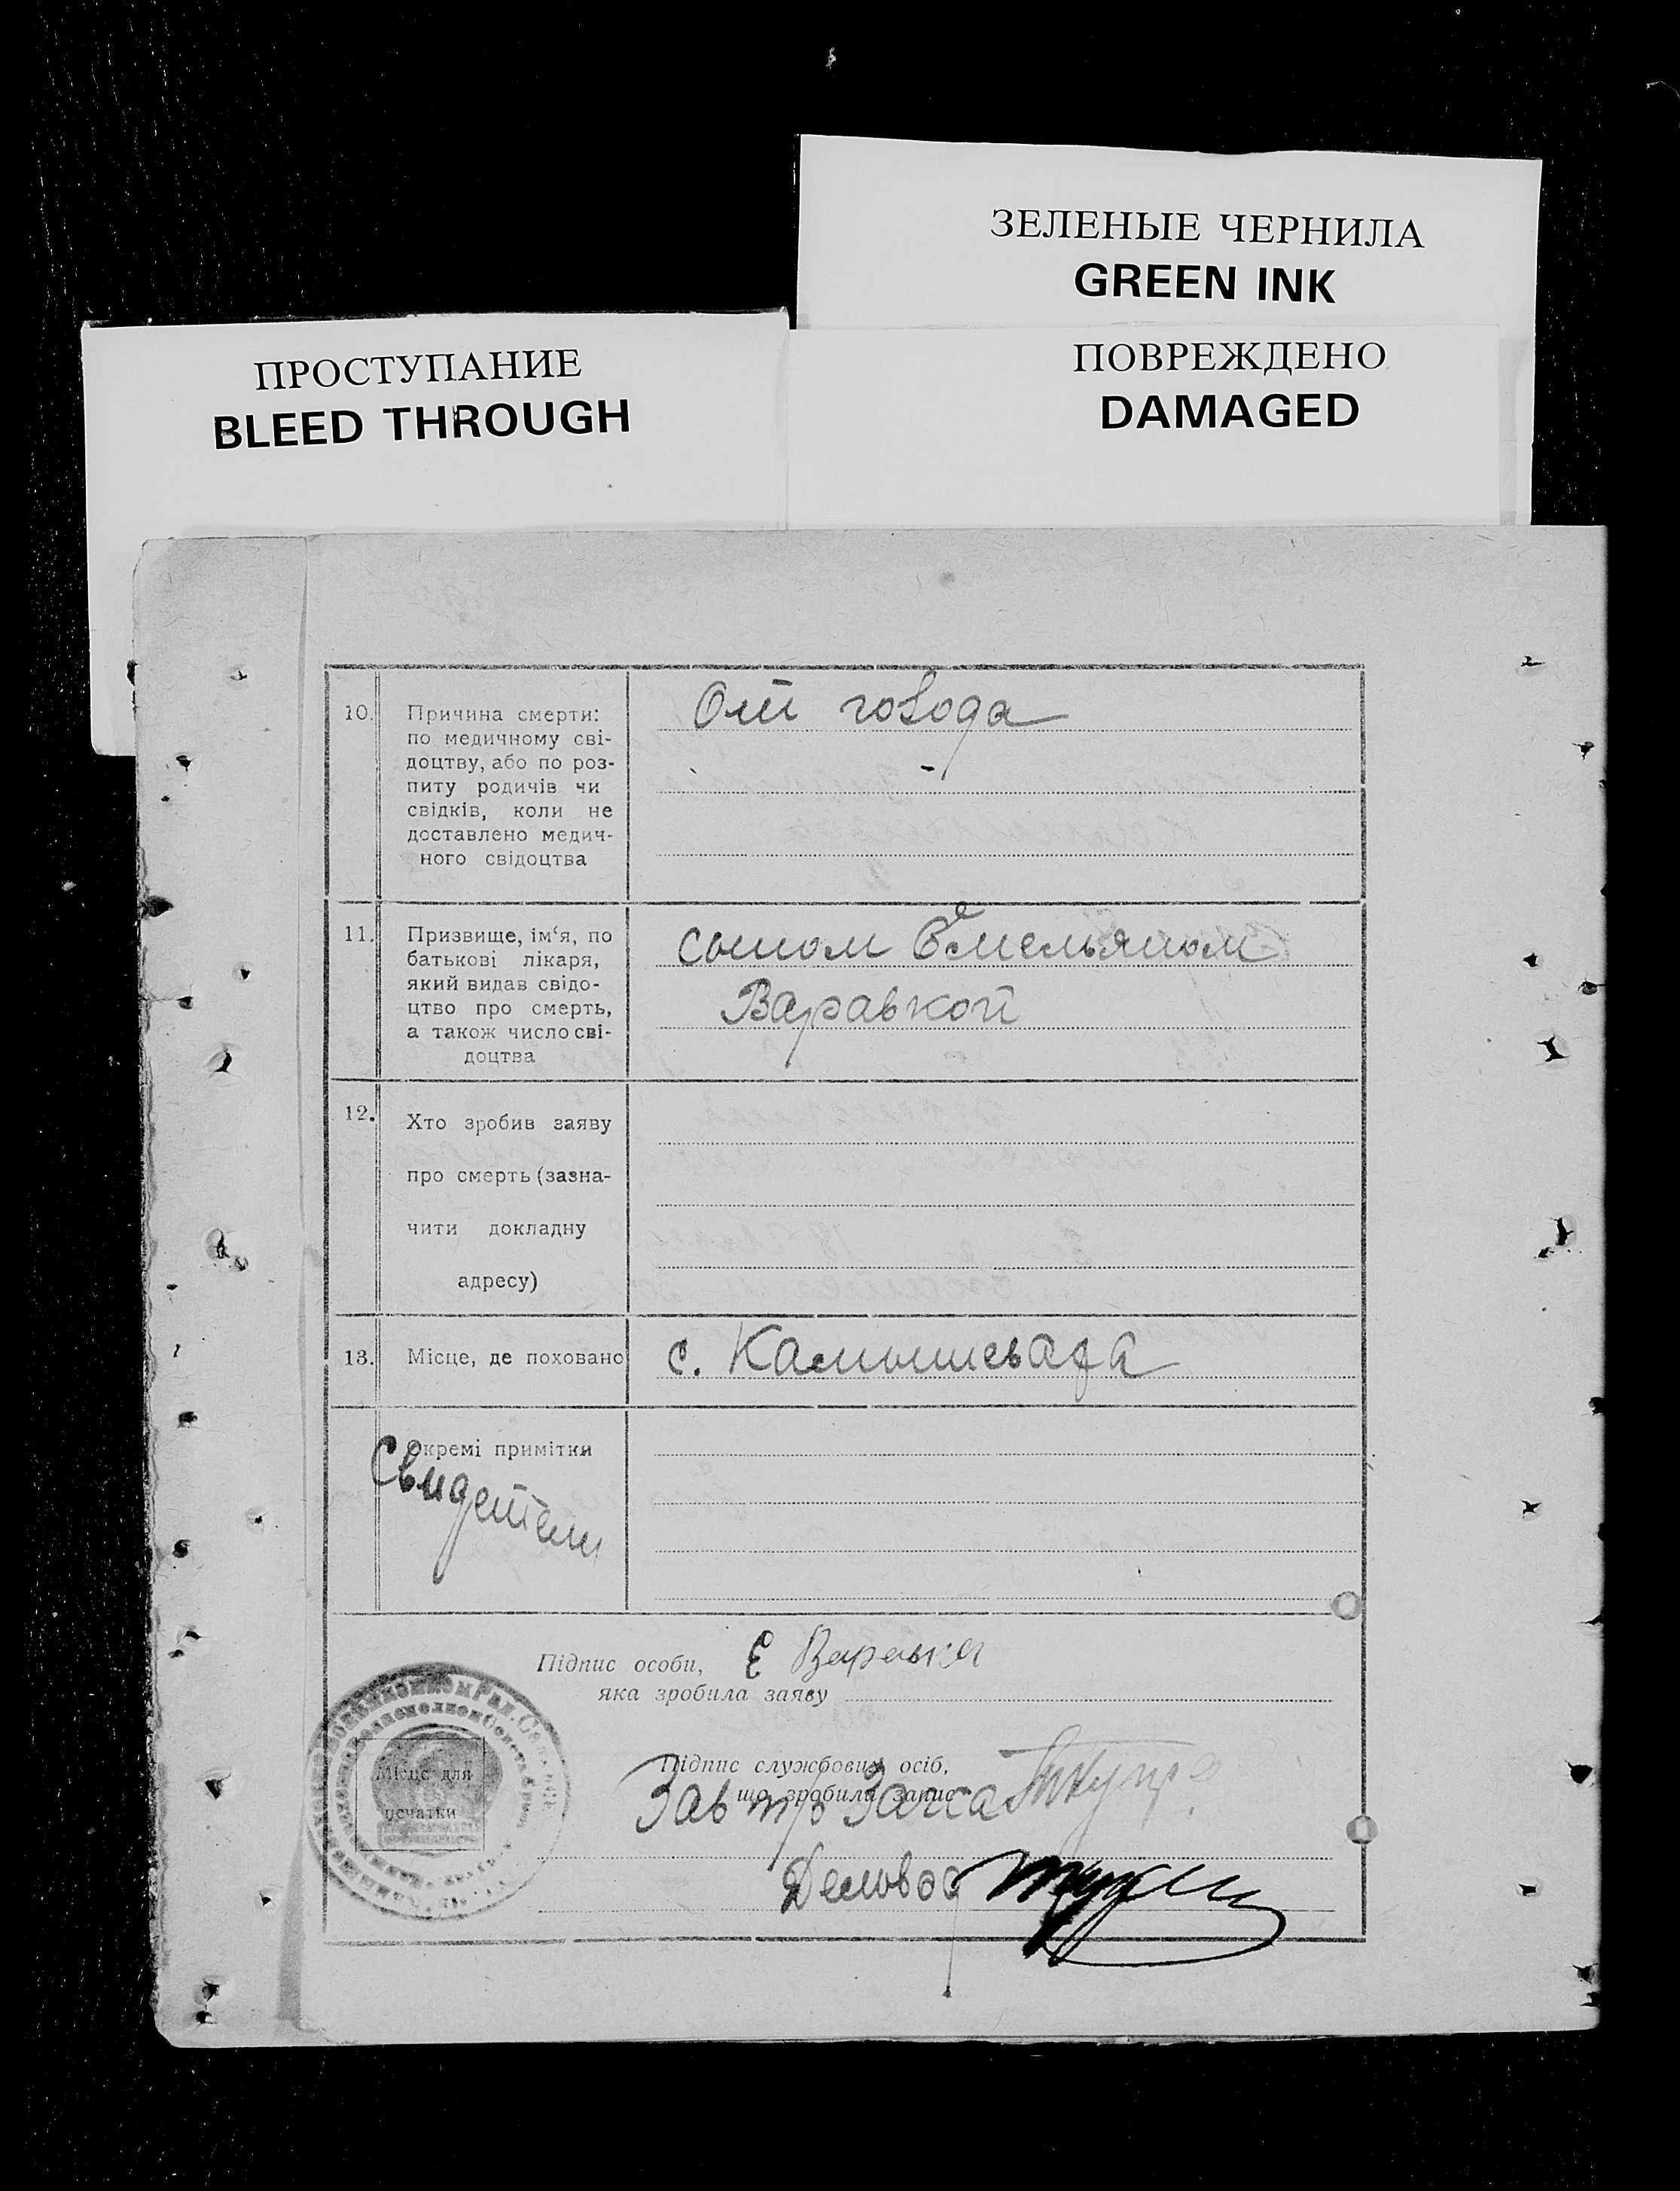 ЗЕЛЕНЫЕ ЧЕРНИЛА
GREEN INK
ПРОСТУПАНИЕ
BLEED THROUGH
ПОВРЕЖДЕНО
DAMAGED
10.
Причина смерти:
по медичному сві-
доцтву, або по роз-
питу родичів чи
свідків, коли не
доставлено медич-
ного свідоцтва
От голода
11.
Призвище, ім‘я, по
батькові лікаря,
який видав свідо-
цтво про смерть,
а також число сві-
доцтва
сыном Емельяном
Варавкой
12.
Хто зробив заяву
про смерть (зазна-
чити докладну
адресу)
13.
Місце, де поховано
с. Камышеваха
Окремі примітки
Свидетели
Підпис особи,
Е Варавка
яка зробила заяву
Місце для
печатки
Підпис службових осіб,
що зробили запис
Зав т/о Загса
Деловод